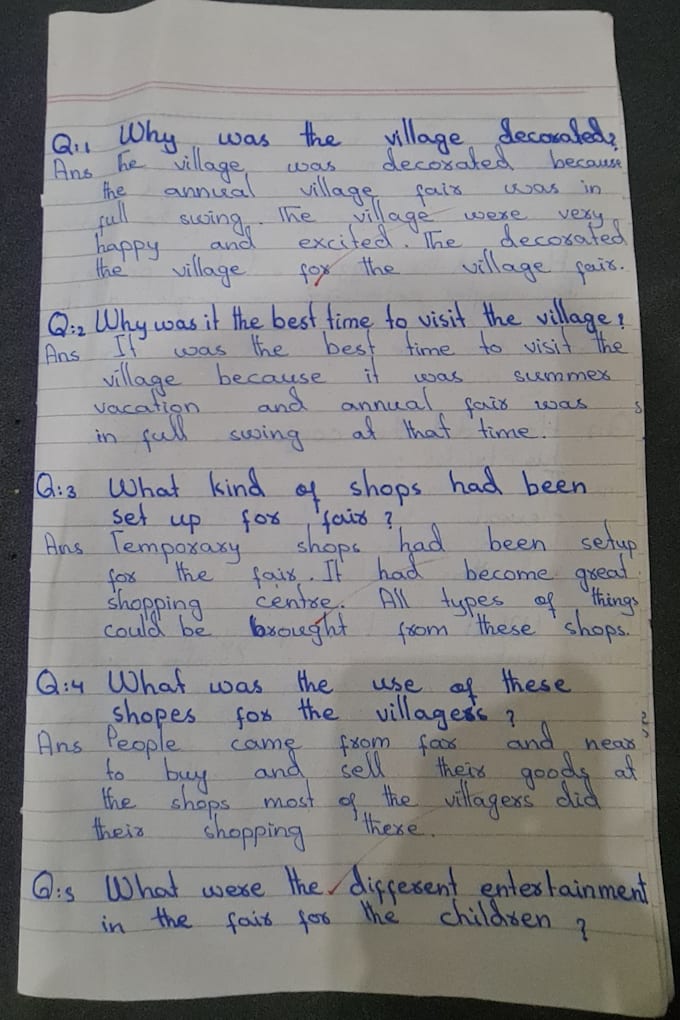 Q:1 Why was the village decorated?
Ans The village was decorated because
the annual village fair was in
full swing. The village were very
happy and excited. The decorated
the village for the village fair.
Q:2 Why was it the best time to visit the village?
Ans It was the best time to visit the
village because it was summer
vacation and annual fair was
in full swing at that time.
Q:3 What kind of shops had been
set up for fair?
Ans Temporary shops had been setup
for the fair. It had become great
shopping centre. All types of things
could be brought from these shops.
Q:4 What was the use of these
shopes for the villagers?
Ans People came from far and near
to buy and sell their goods at
the shops most of the villagers did
their shopping there.
Q:5 What were the different entertainment
in the fair for the children?